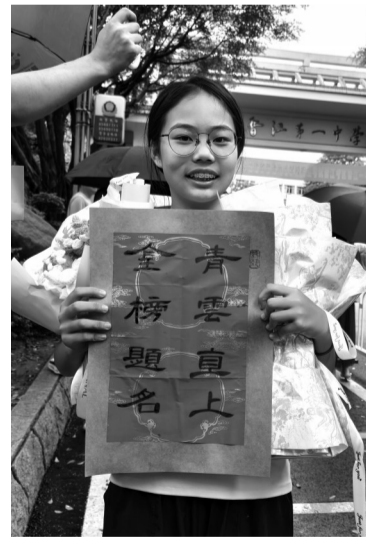 江第一中学
青雲直上
金榜題名